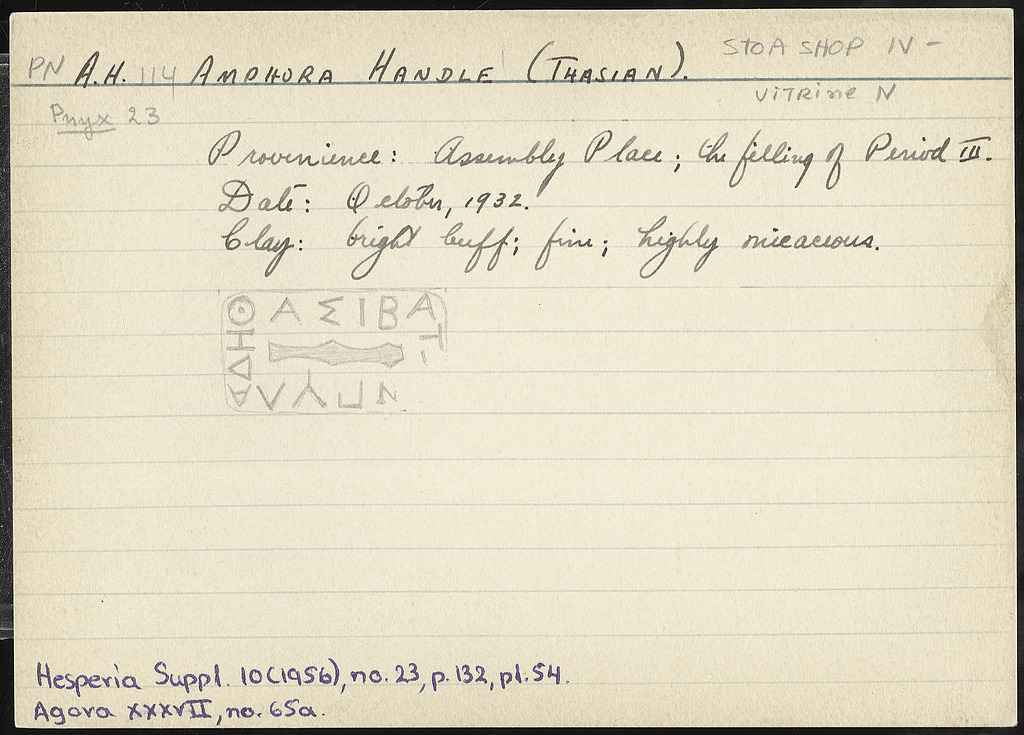 STOA SHOP IV -
PN A.H. 114 AMPHORA HANDLE (THASIAN).
VITRINE N
Pnyx 23
Provenience: Assembly Place; the filling of Period III.
Date: October, 1932.
Clay: bright buff; fine; highly micaceous.
ΘΑΣΙΒΑ
Τ
ΗΔΑ
ΛΥΠΝ
Hesperia Suppl. 10(1956), no. 23, p. 132, pl. 54.
Agora XXXVII, no. 65a.